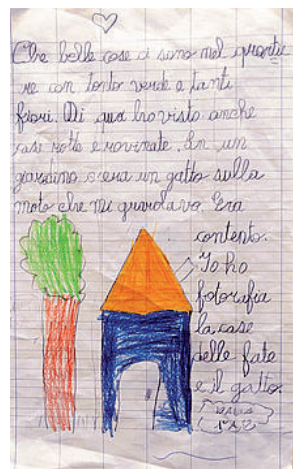 Che belle case ci sono nel quartie
re con tanto verde e tanti
fiori. Di qua ho visto anche
vasi rotti e rovinate. In un
giardino c'era un gatto sulla
moto che mi guardava. Era
contento.
Io ho
fotorafia
la case
delle fate
e il gatto.